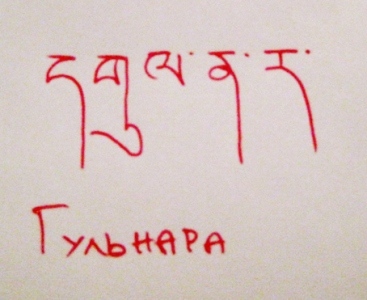 དགུལ་ན་ར་
ГУЛЬНАРА